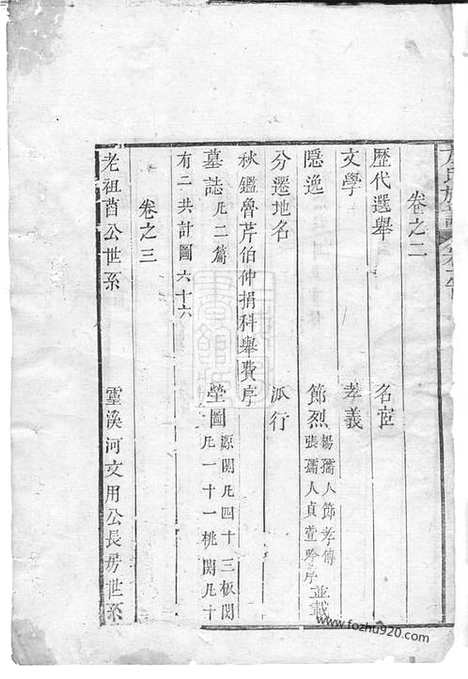 卷之二
歷代選舉 名宦
文學 孝義
隱逸 節烈 楊孺人節孝傳
張孺人貞萱吟序並載
分遷地名 派行
秋鑑魯芹伯仲捐科舉費序
墓誌 凡二篇 塋圖 源関凡四十三板関
凡一十一桃関凡十
有二共計圖六十六
卷之三
老祖酉公世系 霊溪河文用公長房世系
www.fozhu920.com